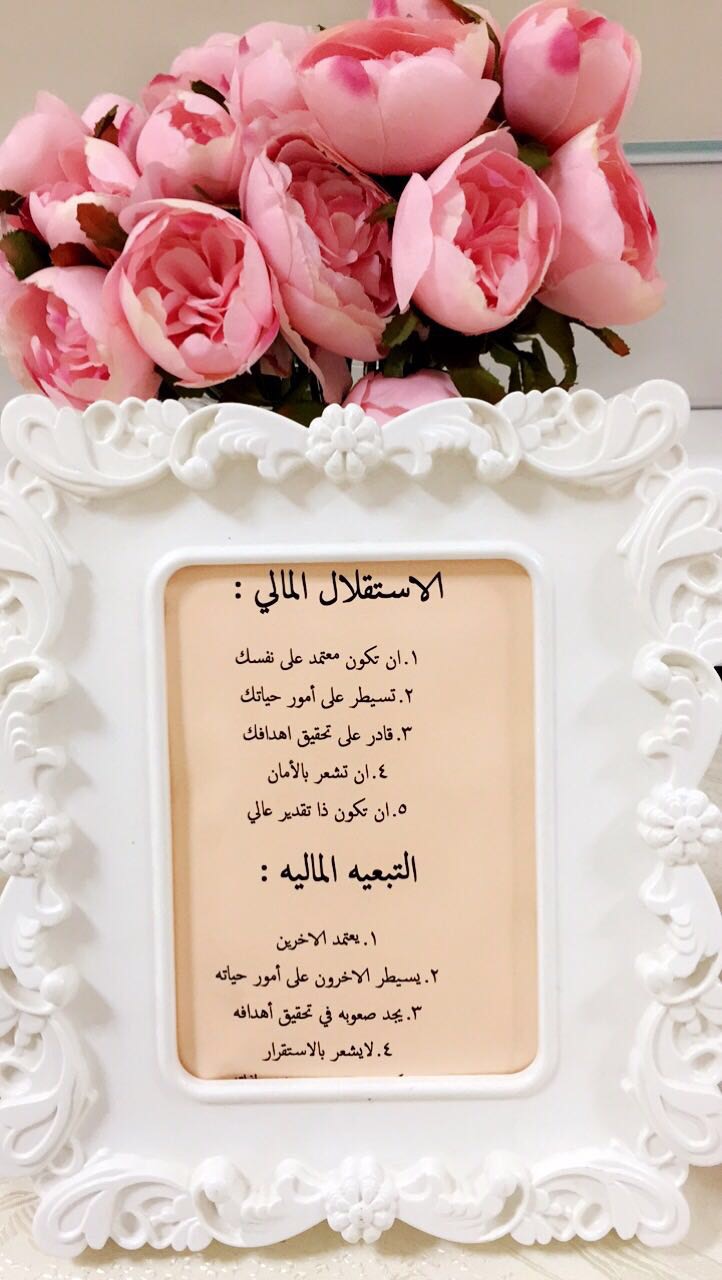 الاستقلال المالي :
١.ان تكون معتمد على نفسك
٢.تسيطر على أمور حياتك
٣.قادر على تحقيق اهدافك
٤.ان تشعر بالأمان
٥.ان تكون ذا تقدير عالي
التبعيه الماليه :
١.يعتمد الاخرين
٢.يسيطر الاخرون على أمور حياته
٣.يجد صعوبه في تحقيق أهدافه
٤.لايشعر بالاستقرار